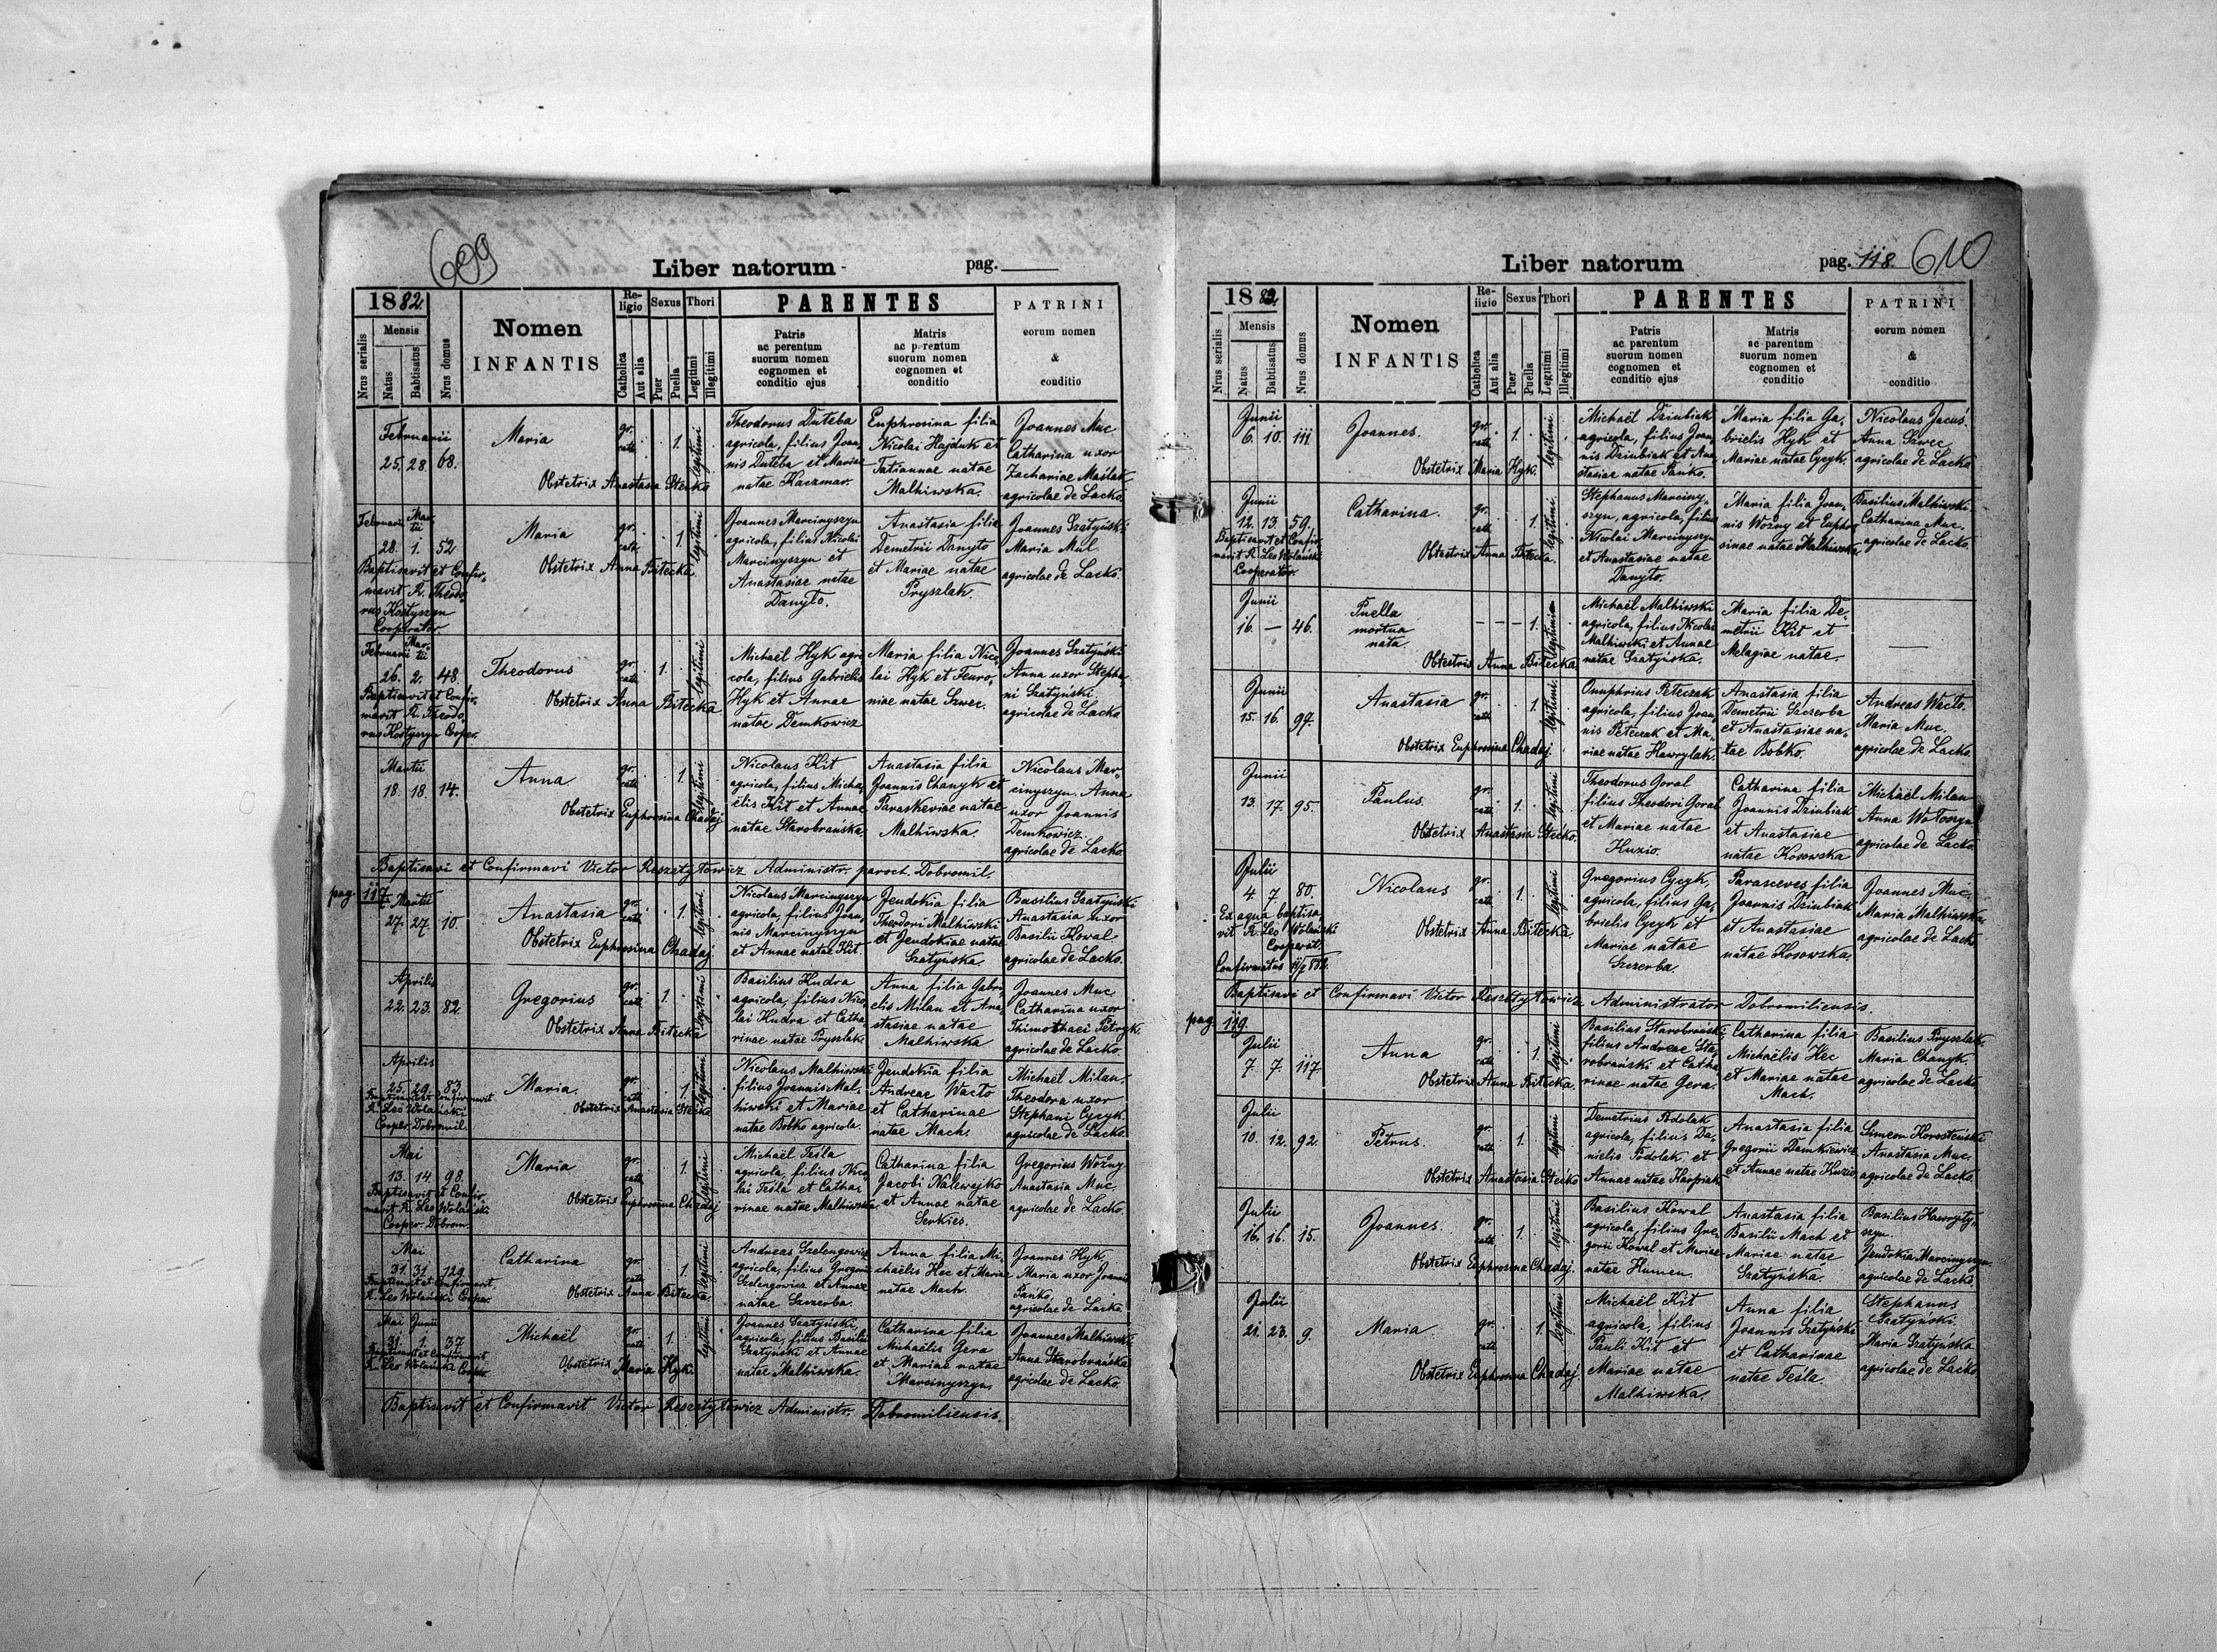 699
Liber natorum
pag.
1882
Nrus serialis
Mensis
Natus
Babtisatus
Nrus domus
Nomen
INFANTIS
Re-
ligio
Catholica
Aut alia
Sexus
Puer
Puella
Thori
Legitimi
Illegitimi
PARENTES
Patris
ac perentum
suorum nomen
cognomen et
conditio ejus
Matris
ac parentum
suorum nomen
cognomen et
conditio
PATRINI
eorum nomen
&
conditio
Februarii
25. 28. 68.
Maria
gr.
cath.
1.
legitimi
Obstetrix Anastasia Stecko
Theodorus Duteba
agricola, filius Joan,
nis Duteba et Mariae
natae Kaczmar.
Euphrosina filia
Nicolai Hajduk et
Tatiannae natae
Malhiwska.
Joannes Muc
Catharina uxor
Zachariae Maślak
agricolae de Lacko.
Februarii Mar-
tii
28. 1. 52
Baptisavit et Confir,
mavit R. Theodo,
rus Kostyszyn
Cooperator.
Maria
gr.
cath.
1.
legitimi
Obstetrix Anna Bitecka
Joannes Marcinyszyn
agricola, filius Nicolai
Marcinyszyn et
Anastasiae natae
Danyło.
Anastasia filia
Demetrii Danyło
et Mariae natae
Pryszlak.
Joannes Szatyński
Maria Mul
agricolae de Lacko.
Februarii Mar-
tii
26. 2. 48.
Baptisavit et Confir,
mavit R. Theodo,
rus Kostyszyn Cooper.
Theodorus
gr.
cath.
1.
legitimi
Obstetrix Anna Bitecka
Michaël Hyk agri
cola, filius Gabrielis
Hyk et Annae
natae Demkowicz
Maria filia Nico,
lai Hyk et Feuro,
niae natae Szwec.
Joannes Szatyński
Anna uxor Stepha
ni Szatyński.
agricolae de Lacko
Martii
18. 18. 14.
Anna
gr.
cath.
1.
legitimi
Obstetrix Euphrosina Chadaj
Nicolaus Kit
agricola, filius Micha,
ëlis Kit et Annae
natae Starobrańska
Anastasia filia
Joannis Chanyk et
Paraskeviae natae
Malhiwska.
Nicolaus Mar,
cinyszyn. Anna
uxor Joannis
Demkowicz.
agricolae de Lacko.
Baptisavi et Confirmavi Victor Reszetyłowicz Administr. paroch. Dobromil.
pag. 117
Martii
27. 27. 10.
Anastasia
gr.
cath.
1.
legitimi
Obstetrix Euphrosina Chadaj.
Nicolaus Marcinyszyn
agricola, filius Joan,
nis Marcinyszyn
et Annae natae Kit.
Jeudokia filia
Theodori Malhiwski
et Jeudokiae natae
Szatyńska.
Basilius Szatyński
Anastasia uxor
Basilii Kowal
agricolae de Lacko.
Aprilis
22. 23. 82.
Gregorius
gr.
cath.
1.
legitimi
Obstetrix Anna Bitecka
Basilius Kudra
agricola, filius Nico,
lai Kudra et Catha,
rinae natae Pryszlak.
Anna filia Gabri
elis Milan et Ana,
stasiae natae
Malhiwska
Joannes Muc
Catharina uxor
Timothaei Petryk.
agricolae de Lacko.
Aprilis
25. 29. 83.
Baptisavit et Confirmavit
R. Leo Wolański
Cooper. Dobromil.
Maria
gr.
cath.
1.
legitimi
Obstetrix Anastasia Stecko
Nicolaus Malhiwski
filius Joannis Mal,
hiwski et Mariae
natae Bobko agricola.
Jeudokia filia
Andreae Wacto
et Catharinae
natae Mach.
Michaël Milan,
Theodora uxor
Stephani Cycyk.
agricolae de Lacko.
Mai
13. 14. 98.
Baptisavit et Confir,
mavit R. Leo Wolański
Cooper. Dobrom.
Maria
gr.
cath.
1.
legitimi
Obstetrix Euphrosina Chadaj
Michaël Tesla
agricola, filius Nico,
lai Tesla et Catha,
rinae natae Malhiwska.
Catharina filia
Jacobi Nalewajko
et Annae natae
Serkies.
Gregorius Wożny
Anastasia Muc
agricolae de Lacko.
Mai
31. 31. 129.
Baptisavit et Confirmavit
R. Leo Wolański Cooper.
Catharina
gr.
cath.
1.
legitimi
Obstetrix Anna Bitecka.
Andreas Szelengowicz
agricola, filius Gregorii
Szelengowicz et Annae
natae Szczerba.
Anna filia Mi,
chaëlis Hec et Mariae
natae Mach.
Joannes Hyk,
Maria uxor Joannis
Pańko,
agricolae de Lacko
Mai Junii
31. 1. 37.
Baptisavit et Confirmavit
R. Leo Wolański Cooper.
Michaël
gr.
cath.
1.
legitimi
Obstetrix Maria Hyk.
Joannes Szatyński,
agricola, filius Basilii
Szatyński et Annae
natae Malhiwska.
Catharina filia
Michaëlis Gera
et Mariae natae
Marcinyszyn.
Joannes Malhiwski
Anna Starobrańska
agricolae de Lacko.
Baptisavit et Confirmavit Victor Reszetyłowicz Administr. Dobromiliensis.
Liber natorum
pag. 118. 610
1882
Nrus serialis
Mensis
Natus
Babtisatus
Nrus domus
Nomen
INFANTIS
Re-
ligio
Catholica
Aut alia
Sexus
Puer
Puella
Thori
Legitimi
Illegitimi
PARENTES
Patris
ac perentum
suorum nomen
cognomen et
conditio ejus
Matris
ac parentum
suorum nomen
cognomen et
conditio
PATRINI
eorum nomen
&
conditio
Junii
6. 10. 111
Joannes.
gr.
cath.
1.
legitimi
Obstetrix Maria Hyk.
Michaël Dziubiak
agricola, filius Joan,
nis Dziubiak et Ana
stasiae natae Pańko.
Maria filia Ga,
brielis Hyk et
Mariae natae Cycyk.
Nicolaus Jacuś.
Anna Szwec
agricolae de Lacko
Junii
12. 13. 59.
Baptisavit et Confir,
mavit R. Leo Wolański
Cooperator.
Catharina.
gr.
cath.
1.
legitimi
Obstetrix Anna Bitecka.
Stephanus Marciny,
szyn, agricola, filius
Nicolai Marcinyszyn
et Anastasiae natae
Danyło.
Maria filia Joan,
nis Wożny et Euphro
sinae natae Malhiwska
Basilius Malhiwski.
Catharina Muc.
agricolae de Lacko.
Junii
16. — 46.
Puella
mortua
nata.
- - - 1.
legitimi
Obstetrix Anna Bitecka
Michaël Malhiwski
agricola, filius Nicolai
Malhiwski et Annae
natae Szatyńska.
Maria filia De,
metrii Kit et
Melagiae natae.
—
Junii
15. 16. 97.
Anastasia
gr.
cath.
1.
legitimi
Obstetrix Euphrosina Chadaj.
Onuphrius Peteczak
agricola, filius Joan,
nis Peteczak et Ma,
riae natae Hawrylak.
Anastasia filia
Demetrii Szczerba
et Anastasiae na,
tae Bobko.
Andreas Wacto.
Maria Muc.
agricolae de Lacko.
Junii
13. 17. 95.
Paulus.
gr.
cath.
1.
legitimi
Obstetrix Anastasia Stecko.
Theodorus Goral
filius Theodori Goral
et Mariae natae
Kuzio.
Catharina filia
Joannis Dziubiak
et Anastasiae
natae Kosowska
Michaël Milan
Anna Wołoszyn
agricolae de Lacko
Julii
4. 7. 80.
Ex aqua baptisa,
vit R. Leo Wolański
Cooperat.
Nicolaus
gr.
cath.
1.
legitimi
Obstetrix Anna Bitecka.
Gregorius Cycyk,
agricola, filius Ga,
brielis Cycyk et
Mariae natae
Szczerba.
Parasceves filia
Joannis Dziubiak
et Anastasiae
natae Kosowska.
Joannes Muc.
Maria Malhiwska
agricolae de Lacko
Baptisavi et Confirmavi Victor Reszetyłowicz Administrator Dobromiliensis.
pag. 119.
Julii
7. 7. 117.
Anna
gr.
cath.
1.
legitimi
Obstetrix Anna Bitecka.
Basilius Starobrański
filius Andreae Sta,
robrański et Catha
rinae natae Gera.
Catharina filia
Michaëlis Hec
et Mariae natae
Mach.
Basilius Pryszlak.
Maria Chanyk.
agricolae de Lacko.
Julii
10. 12. 92.
Petrus.
gr.
cath.
1.
legitimi
Obstetrix Anastasia Stecko
Demetrius Podolak
agricola, filius Da,
nielis Podolak, et
Annae natae Karpiak
Anastasia filia
Gregorii Damkiewicz
et Annae natae Kuzio.
Simeon Korosteński
Anastasia Muc.
agricolae de Lacko.
Julii
16. 16. 15.
Joannes.
gr.
cath.
1.
legitimi
Obstetrix Euphrosina Chadaj.
Basilius Kowal
agricola, filius Gre,
gorii Kowal et Mariae
natae Humen.
Anastasia filia
Basilii Mach et
Mariae natae
Szatyńska.
Basilius Hawryły,
szyn.
Jeudokia Marcinyszyn.
agricolae de Lacko.
Julii
21. 23. 9.
Maria
gr.
cath.
1.
legitimi
Obstetrix Euphrosina Chadaj.
Michaël Kit
agricola, filius
Pauli Kit et
Mariae natae
Malhiwska.
Anna filia
Joannis Szatyński
et Catharinae
natae Tesla.
Stephanus
Szatyński.
Maria Szatyńska
agricolae de Lacko.